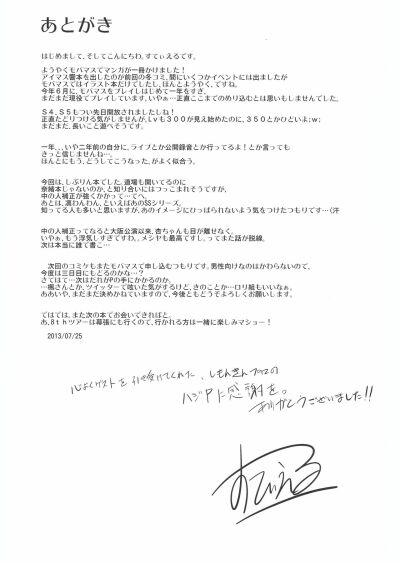 あとがき
はじめまして、そしてこんにちわ、すてぃえるです。
ようやくモバマスでマンガが一冊かけました!
アイマス響本を出したのが前回の冬コミ、間にいくつかイベントには出ましたが
モバマスではイラスト本だけでしたし、ほんとようやく、ですね。
今年6月に、モバマスをプレイしはじめて一年をすぎ、
まだまだ現役でプレイしています、いやぁ…正直ここまでのめり込むとは思いもしませんでした。
S4、S5もつい先日開放されましたしね!
正直たどりつける気がしませんが、Lvも300が見え始めたのに、350とかひどいよ;w;
まだまだ、長いこと遊べそうです。
一年、、、いや二年前の自分に、ライブとか公開録音とか行ってるよ!とか言っても
きっと信じませんね…。
ほんとにもう、どうしてこうなった、がよく似合う。
今回は、しぶりん本でした。道場も開いてるのに
奈緒本じゃないのか、と知り合いにはつっこまれそうですが、
中の人補正が強くかかって…てへ。
あとは、凛わんわん、といえばあのSSシリーズ。
知ってる人も多いと思いますが、あのイメージにひっぱられないよう気をつけたつもりです…(汗
中の人補正ってなると大阪公演以来、杏ちゃんも目が離せなく。
いやぁ、もう浮気しすぎすわ、。メシヤも最高ですし。ってまた話が脱線。
次は本当に誰で書こ…
次回のコミケもまたモバマスで申し込むつもりです。男性向けなのはかわらないので、
今度は三日目にもどるのかな…?
さてはて…次はだれがPの手にかかるのか。
…楓さんとか、ツイッターで呟いた気がするけど、きのことか…ロリ組もいいなぁ。
ああいや、まだまだ決めかねていますので、今後ともどうぞよろしくお願いします。
ではでは、また次の本でお会いできればと。
あ、8thツアーは幕張にも行くので、行かれる方は一緒に楽しみマショー!
2013/07/25
心よくゲストを引き受けてくれた、しもんきん
ハジPに感謝を。
ありがとうございました!!
すてぃえる